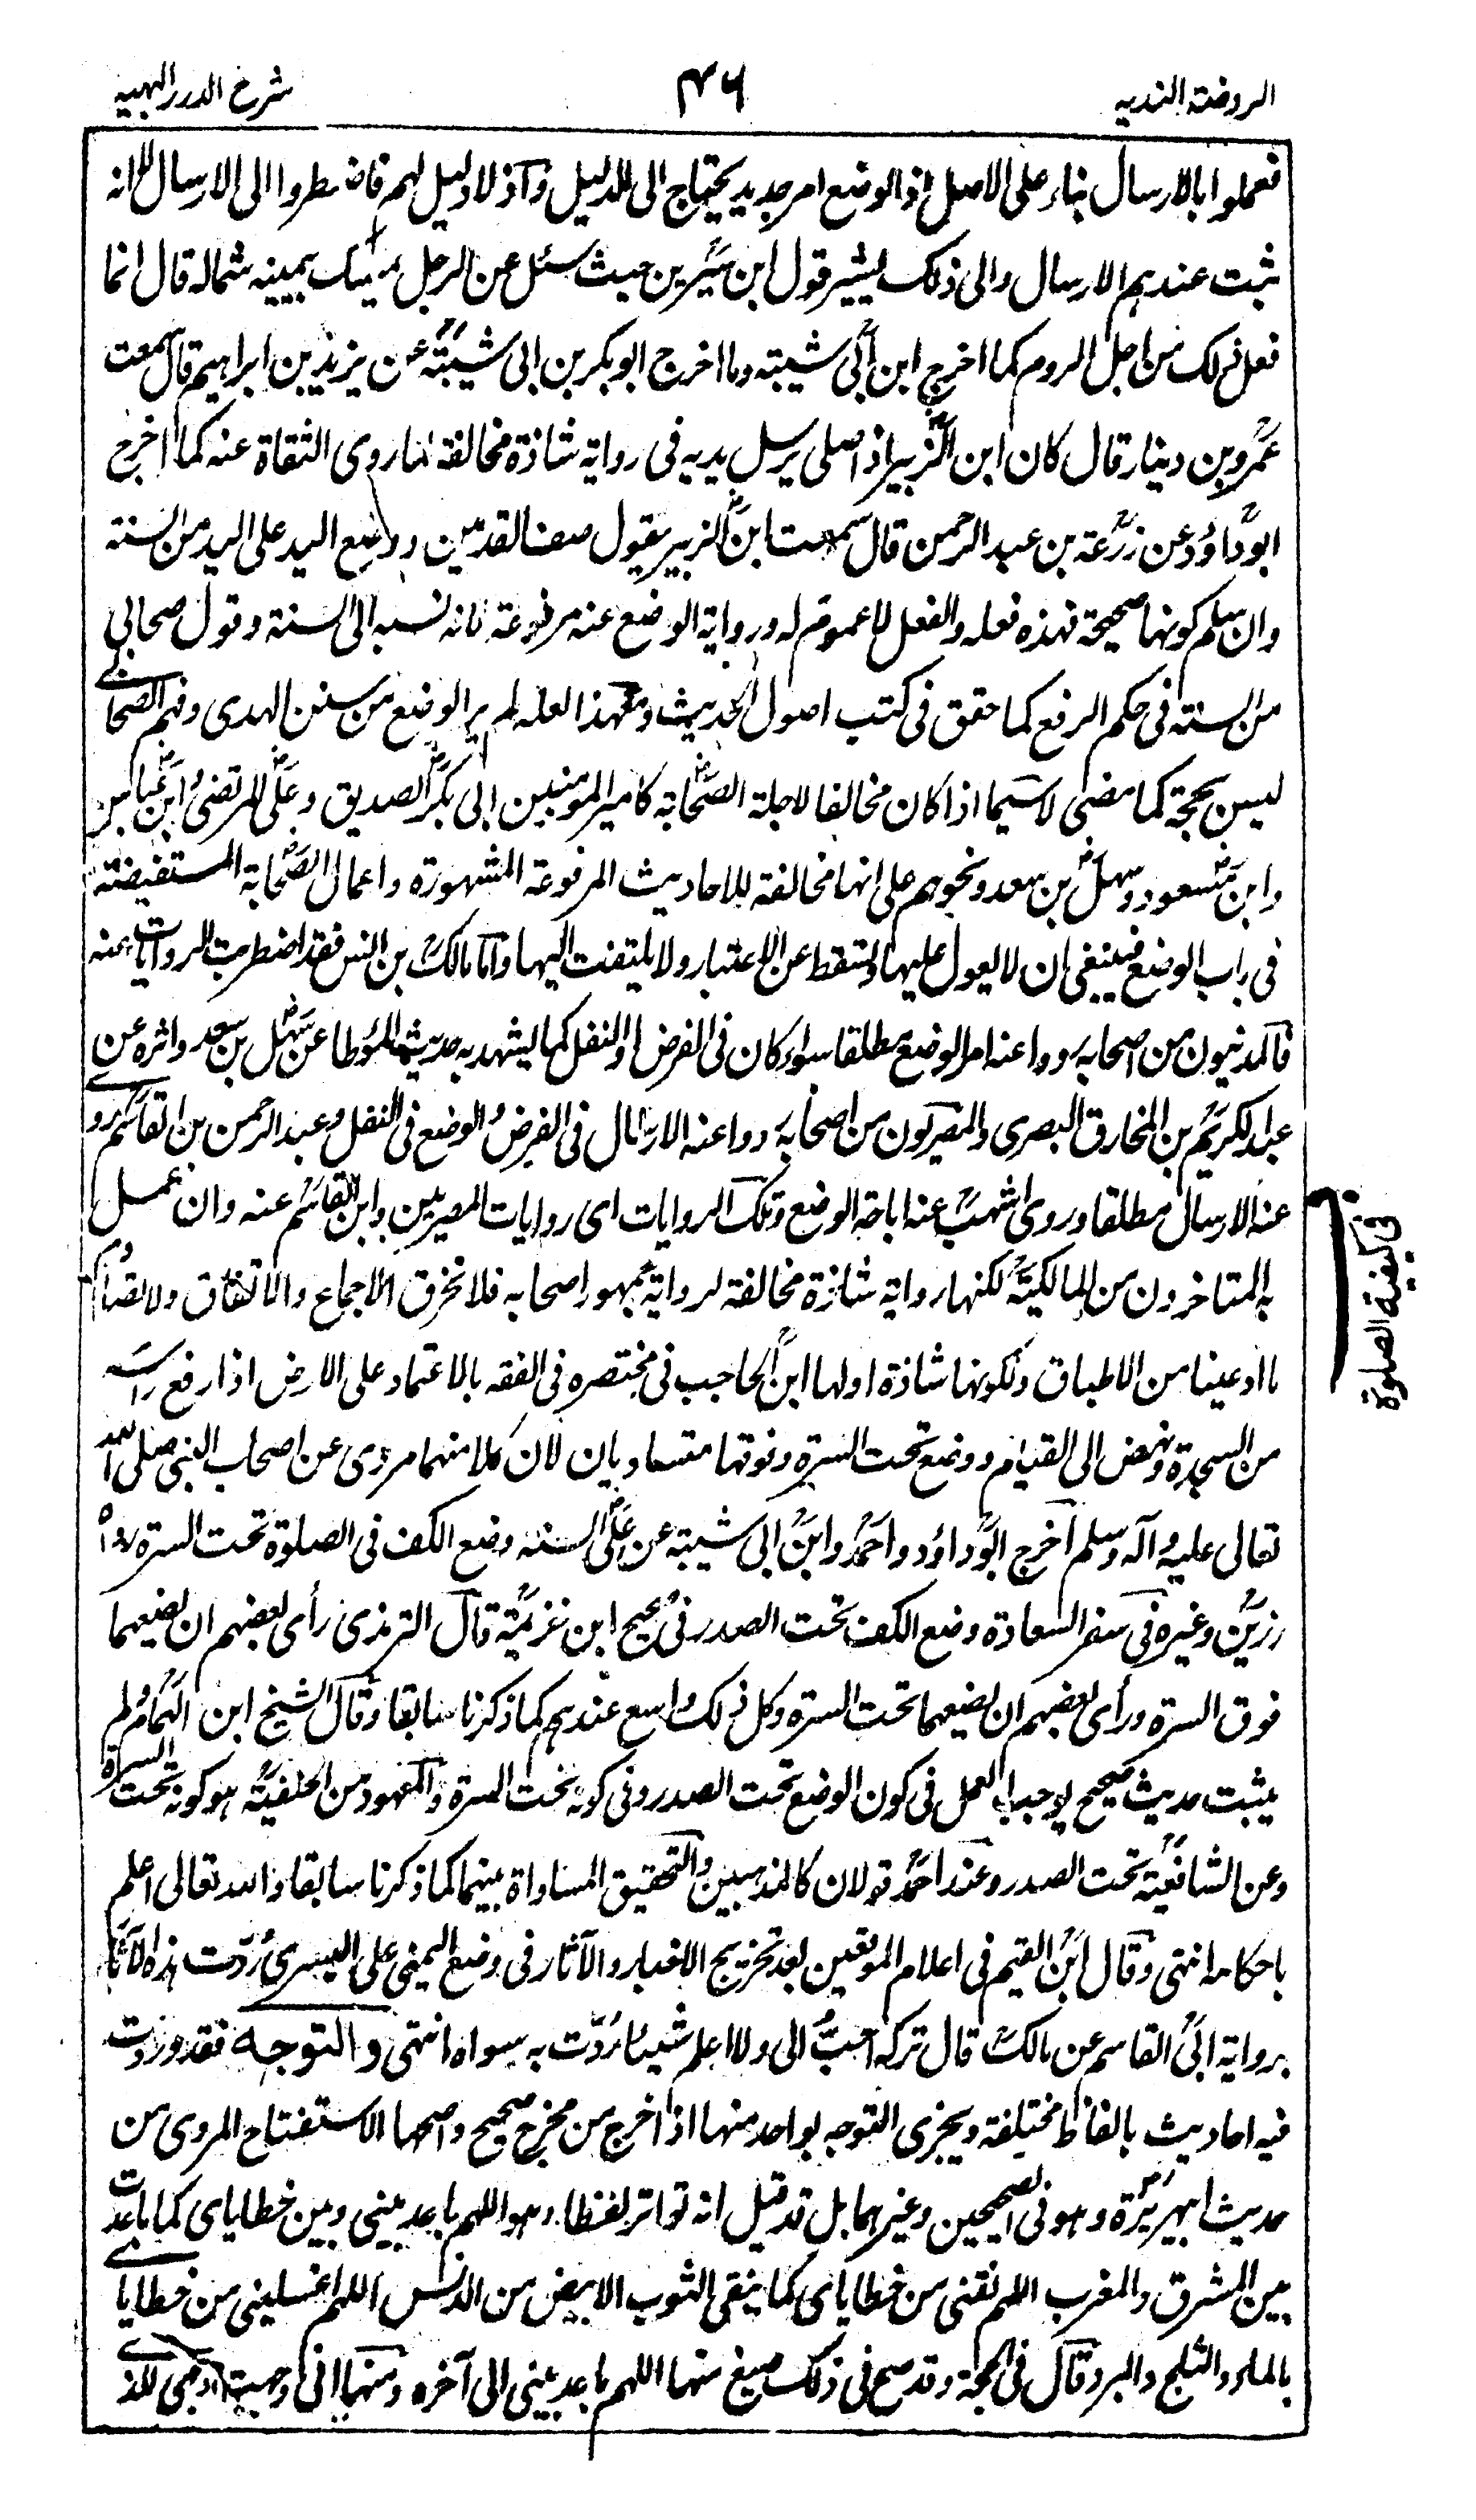 الروضة الندیه
۴۶
شرح الدرر البهیه
فعملوا بالارسال بناء علی الاصل اذ الوضع امر جدید یحتاج الی الدلیل واذ لا دلیل لهم فاضطروا الی الارسال لا انه
ثبت عندهم الارسال والی ذلک یشیر قول ابن سیرین حیث سئل عن الرجل یمسک بیمینه شماله قال انما
فعل ذلک من اجل الروم کما اخرج ابن ابی شیبة وما اخرج ابو بکر بن ابی شیبة عن یزید بن ابراهیم قال سمعت
عمرو بن دینار قال کان ابن الزبیر اذا صلی یرسل یدیه فی روایة شاذة مخالفة لما روی الثقاة عنه کما اخرج
ابو داؤد عن زرعة بن عبد الرحمن قال سمعت ابن الزبیر یقول صف القدمین ووضع الید علی الید من السنة
وان سلم کونها صحیحة فهذه فعله والفعل لا عموم له وروایة الوضع عنه مرفوعة فانه نسبه الی السنة وقول صحابی
من السنة فی حکم الرفع کما حقق فی کتب اصول الحدیث ومع هذا لعله لم یر الوضع من سنن الهدی وفهم الصحابی
لیس بحجة کما مضی لا سیما اذا کان مخالفا لاجلة الصحابة کامیر المؤمنین ابی بکر الصدیق وعلی المرتضی وابن عباس
وابن مسعود وسهل بن سعد ونحوهم علی انها مخالفة للاحادیث المرفوعة المشهورة واعمال الصحابة المستفیضة
فی باب الوضع فینبغی ان لا یعول علیها وتسقط عن الاعتبار ولا یلتفت الیها واما مالک بن انس فقد اضطربت الروایات عنه
فالمدنیون من اصحابه رووا عنه امر الوضع مطلقا سواء کان فی الفرض او النفل کما یشهد به حدیث المؤطا عن سهل بن سعد واثره عن
عبد الکریم بن المخارق البصری والمصریون من اصحابه رووا عنه الارسال فی الفرض والوضع فی النفل وعبد الرحمن بن القاسم روی
عنه الارسال مطلقا وروی اشهب عنه اباحة الوضع وتلک الروایات ای روایات المصریین وابن القاسم عنه وان عمل
به المتاخرون من المالکیة لکنها روایة شاذة مخالفة لروایة جمهور اصحابه فلا تخرق الاجماع والاتفاق ولا یصادم
ما ادعینا من الاطباق ولکونها شاذة اولها ابن الحاجب فی مختصره فی الفقه بالاعتماد علی الارض اذا رفع راسه
من السجدة ونهض الی القیام ووضع تحت السرة وفوقها متساویان لان کلا منهما مروی عن اصحاب النبی صلی الله
تعالی علیه وآله وسلم اخرج ابو داؤد واحمد وابن ابی شیبة عن علی السنة وضع الکف فی الصلوة تحت السرة رواه
رزین وغیره فی سفر السعادة وضع الکف تحت الصدر فی صحیح ابن خزیمة قال الترمذی رأی بعضهم ان یضعهما
فوق السرة ورأی بعضهم ان یضعهما تحت السرة وکل ذلک واسع عندهم کما ذکرنا سابقا وقال الشیخ ابن الهمام ولم
یثبت حدیث صحیح یوجب العمل فی کون الوضع تحت الصدر وفی کونه تحت السرة والمعهود من الحنفیة هو کونه تحت السرة
وعن الشافعیة تحت الصدر وعند احمد قولان کالمذهبین والتحقیق المساواة بینهما کما ذکرنا سابقا والله تعالی اعلم
باحکامه انتهی وقال ابن القیم فی اعلام الموقعین بعد تخریج الاخبار والآثار فی وضع الیمنی علی الیسری رُدّت هذه الآثار
بروایة ابی القاسم عن مالک قال ترکه احبّ الی ولا اعلم شیئا رُدّت به سواه انتهی والتوجه فقد وردت
فیه احادیث بالفاظ مختلفة ویجزی التوجه بواحد منها اذا خرج من مخرج صحیح واصحها الاستفتاح المروی من
حدیث ابی هریرة وهو فی الصحیحین وغیرهما بل قد قیل انه تواتر لفظا وهو اللهم باعد بینی وبین خطایای کما باعدت
بین المشرق والمغرب اللهم نقنی من خطایای کما ینقی الثوب الابیض من الدنس اللهم اغسلنی من خطایای
بالماء والثلج والبرد قال فی الحجة وقد صح فی ذلک صیغ منها اللهم باعد بینی الی آخره ومنها انی وجهت وجهی للذی
فی کیفیة الصلوة